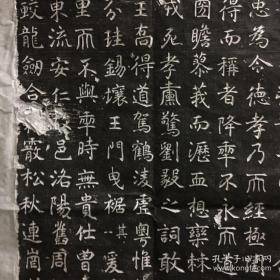 忠為令德孝乃而經極
得而稱者降年不永而
圖瞻蓼莪而瀝血想欒棘
戎死孝盧驚劉毅之詞敢
王喬得道駕鶴淩虛粵惟
芬珪錫壤王門曳裾其爰
里而不與年時無貴仕曾
東流安仁邑洛陽舊周
蛟龍劒合霰松秋連崗